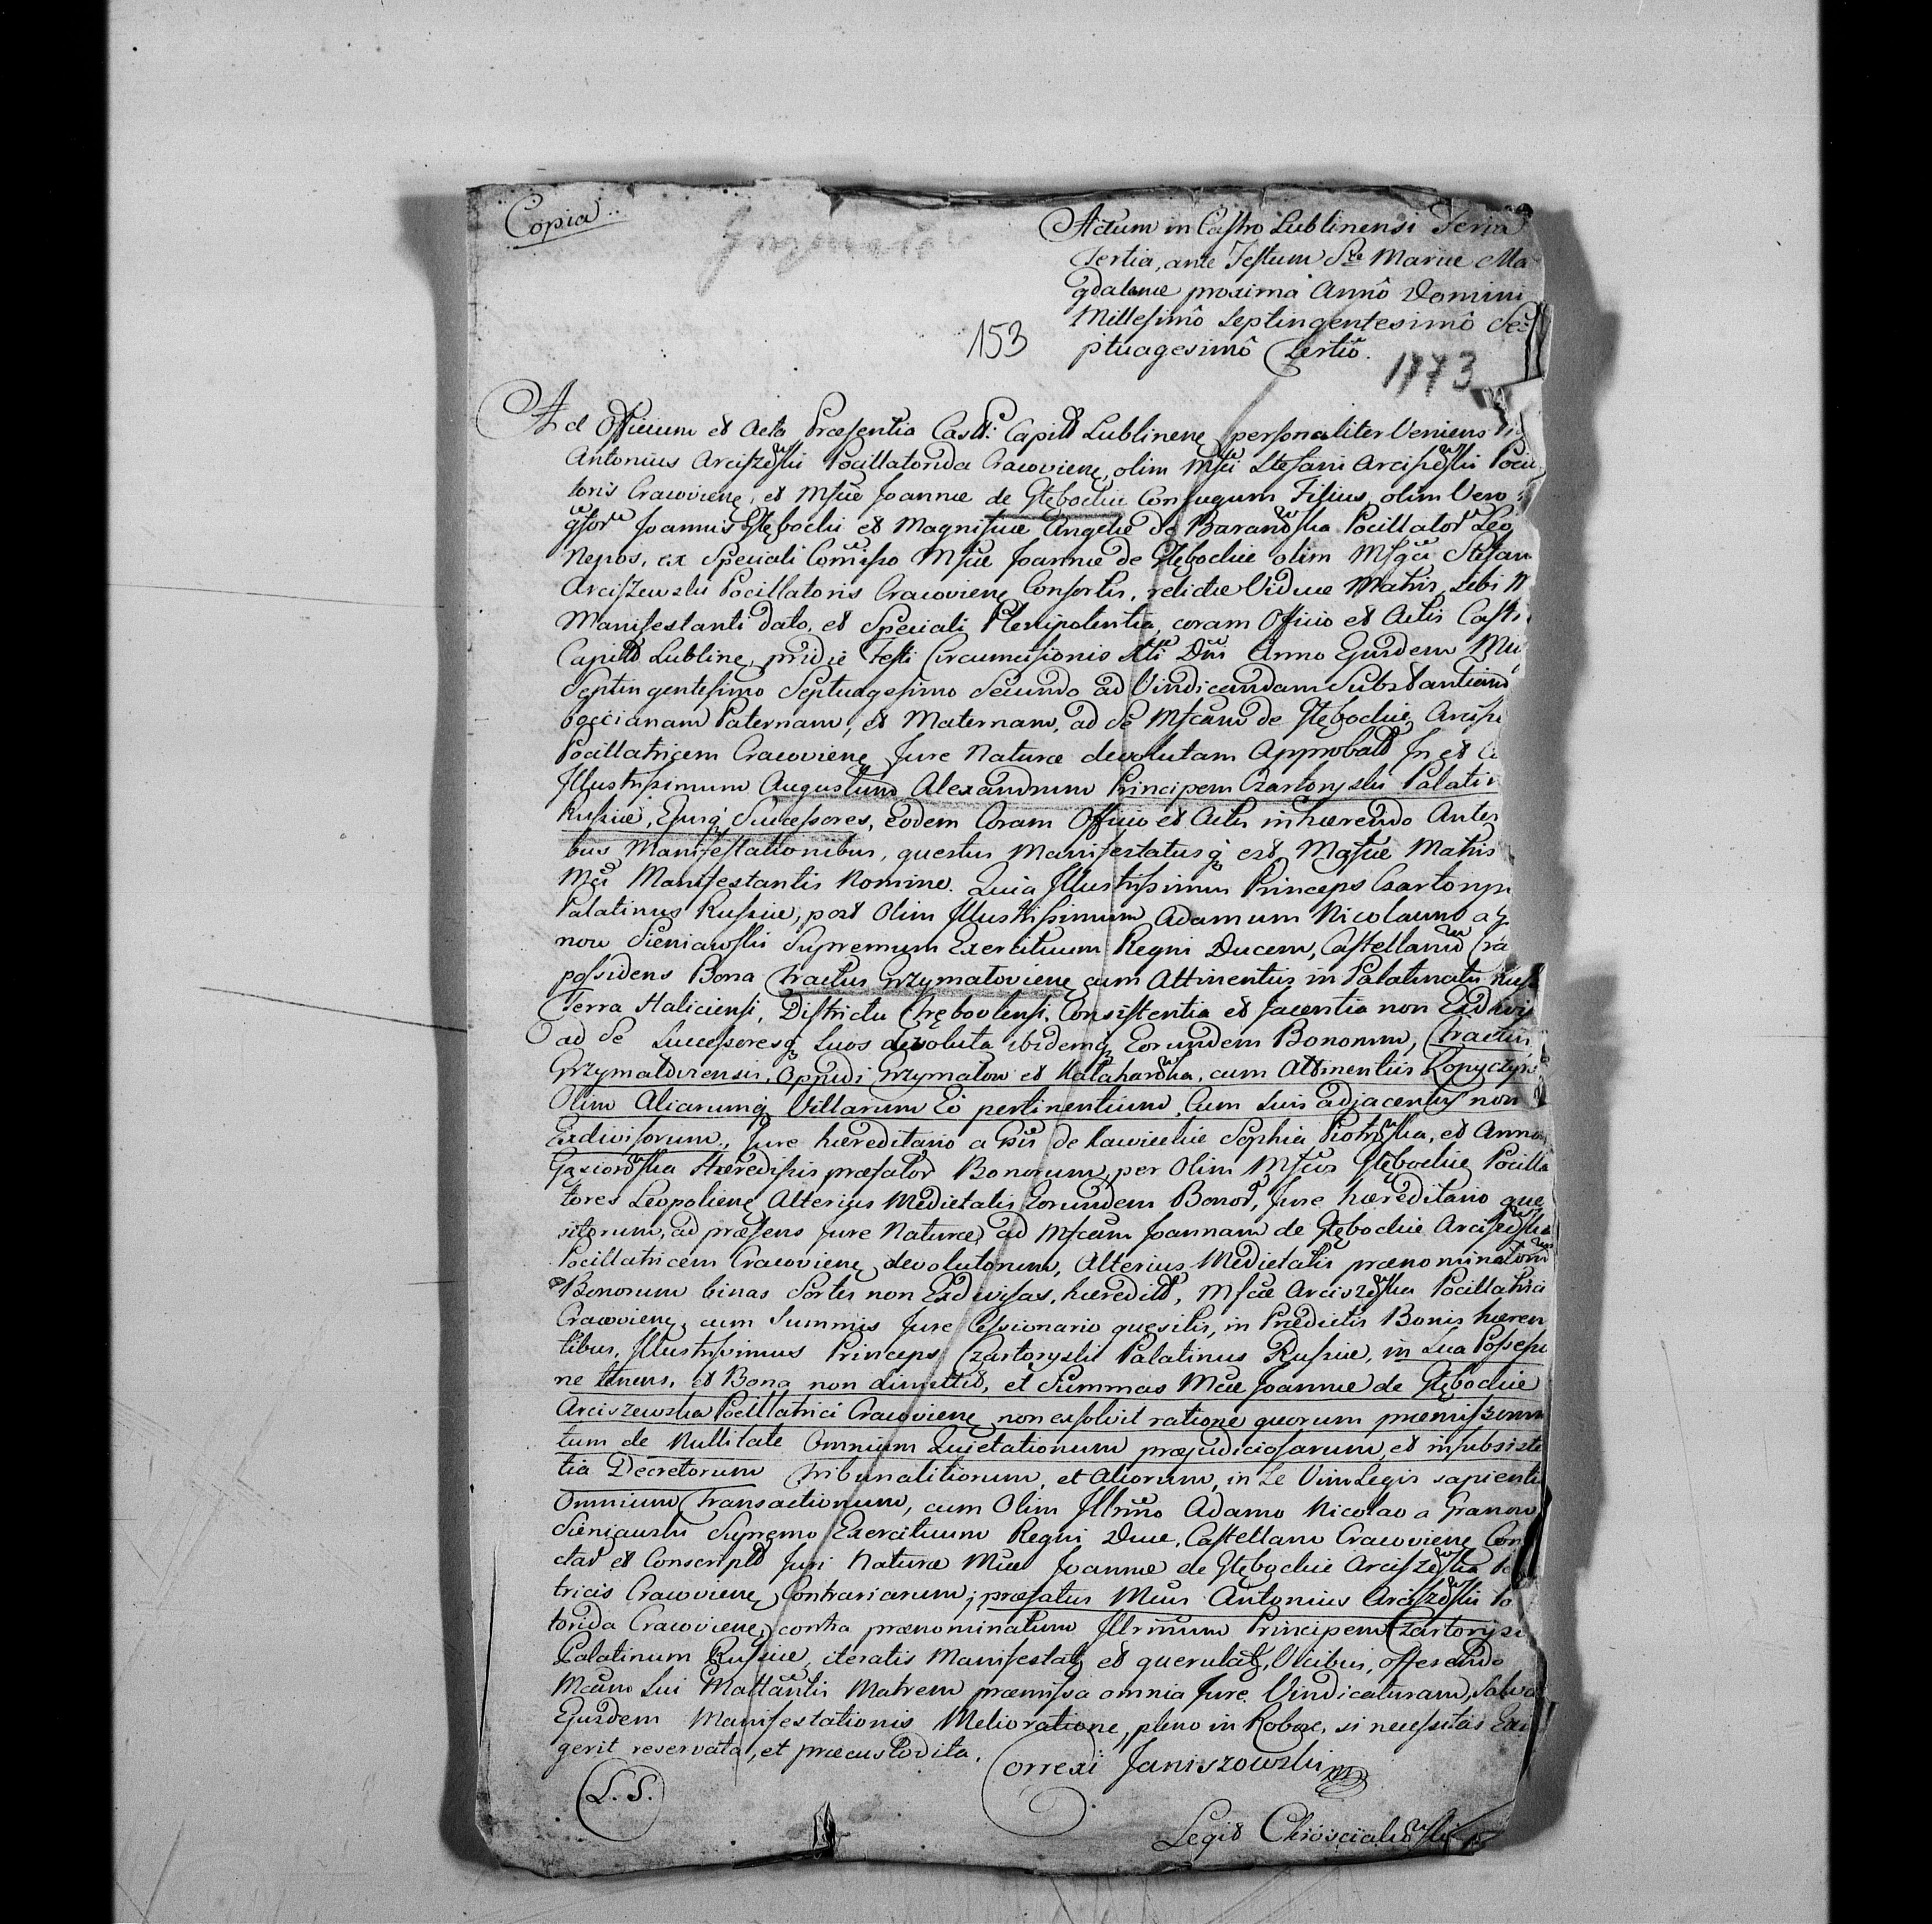 Copia
Actum in Castro Lublinensi Feria
Tertia, ante Festum Stæ Mariæ Ma
gdalenæ proximâ Annô Domini
Millesimô Septingentesimô Se=
153
ptuagesimô Tertiô.
1773
Ad Officium et Acta Præsentia Castr: Capitl Lublinenę personaliter Veniens
Antonius Arciszewski Pocillatorida Cracovienę, olim Mfci Stefani Arciszewski Pocil
toris Cracovienę, et Mfcæ Joannæ de Głębockie Conjugum Filius, olim Vero
Joannis Głębocki et Magnificæ Angelæ de Baranowska Pocillator Leo
Nepos, ex Speciali Comisso Mfcæ Joannæ de Głębockie olim Stefani
Arciszewski Pocillatoris Cracovienę Consortis, relictæ Viduæ Matris, Sibi
Manifestanti dato, et Speciali Plenipotentia, coram Officio et Actis Castr
Capitl Lublinę pridie Festi Circumcisionis Xti Dni Anno Ejusdem Mil
Septingentesimo Septuagesimo Secundo ad Vindicandam Substantiam
bocianam Paternam, et Maternam, ad se Mfcam de Głębockie Arcisze
Pocillatricem Cracovienę Jure Naturæ devolutam Approbatł In et
Illustrissimum Augustum Alexandrum Principem Czartoryski Palatin
Russiæ, Ejusq Successores, eodem Coram Officio et Actis inhærendo Anter
bus Manifestationibus, questus Manifestatusq est Mgfcæ Matris
Mfci Manifestantis Nomine. Quia Illustrissimus Princeps Czartorys
Palatinus Russiæ, post Olim Illustrissimum Adamum Nicolaum a G
now Sieniawski Supremum Exercituum Regni Ducem, Castellanum Cra
possidens Bona Tractus Grzymałovienę cum Attinentiis in Palatinatu Russ
Terra Haliciensi, Districtu Trębovlensi, Consistentia et jacentia non Exdivis
ad Se Successoresq Suos devoluta ibidemq Eorundem Bonorum, Tractus
Grzymałoviensis, Oppidi Grzymałow et Kałaharowka, cum Attinentiis Kopyczyn
Olim Aliarumq Villarum Eo pertinentium, Cum Suis adjacentys non
Exdivisorum, Jure hæreditario a de Ławieckie Sophia Piotrowska, et Anna
Gąsiorowska Hæredissis præfator Bonorum, per Olim Mfcos Głębockie Pocilla
tores Leopolienę Alterius Medietatis Eorundem Bonor, Jure hæreditario quę
sitorum, ad præsens Jure Naturæ ad Mfcam Joannam de Głębockie Arciszewska
Pocillatricem Cracovienę devolutorum, Alterius Medietatis prænominatorum
Bonorum binas Sortes non Exdivisas, hæreditł, Mfcæ Arciszewska Pocillatrici
Cracovienę cum Summis Jure Cessionario quęsitis, in Prædictis Bonis hæren
tibus, Illustrissimus Princeps Czartoryski Palatinus Russiæ, in Sua Possessi
ne tenens, et Bona non dimittit, et Summas Mcæ Joannæ de Głębockie
Arciszewska Pocillatrici Cracovienę non exsolvit ratione quorum præmissorum
tum de Nullitate Omnium Quietationum præjudiciosarum, et insubsisten
tia Decretorum Tribunalitiorum, et Aliorum, in Se Vim Legis sapienti
Omnium Transactionum, cum Olim Illrmo Adamo Nicolao a Granow
Sieniawski Supremo Exercituum Regni Duce, Castellano Cracovienę Con
ctar et Conscriptl Juri Naturæ Mcæ Joannæ de Głębockie Arciszewska
tricis Cracovienę Contrariarum; præfatus Mcus Antonius Arciszewski Po
torida Cracovienę, contra prænominatum Illrmum Principem Czartorys
Palatinum Russiæ, iteratis Manifestatę et querulatę, Vicibus, offerendo
Mcam Sui Mattantis Matrem præmissa omnia Jure Vindicaturam, Salva
Ejusdem Manifestationis Melioratione, pleno in Robore, si necessitas Exe
gerit reservata, et præcustodita.
Correxi Janiszowski
(L.S.)
Legit